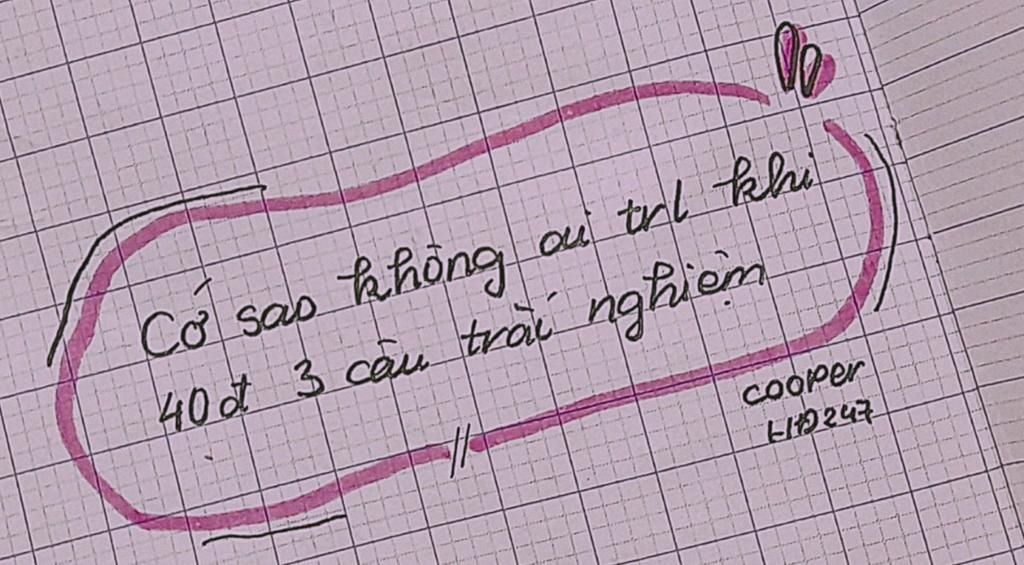 Cớ sao không ai trl khi
40đ 3 câu trải nghiệm
COOPER
HD247